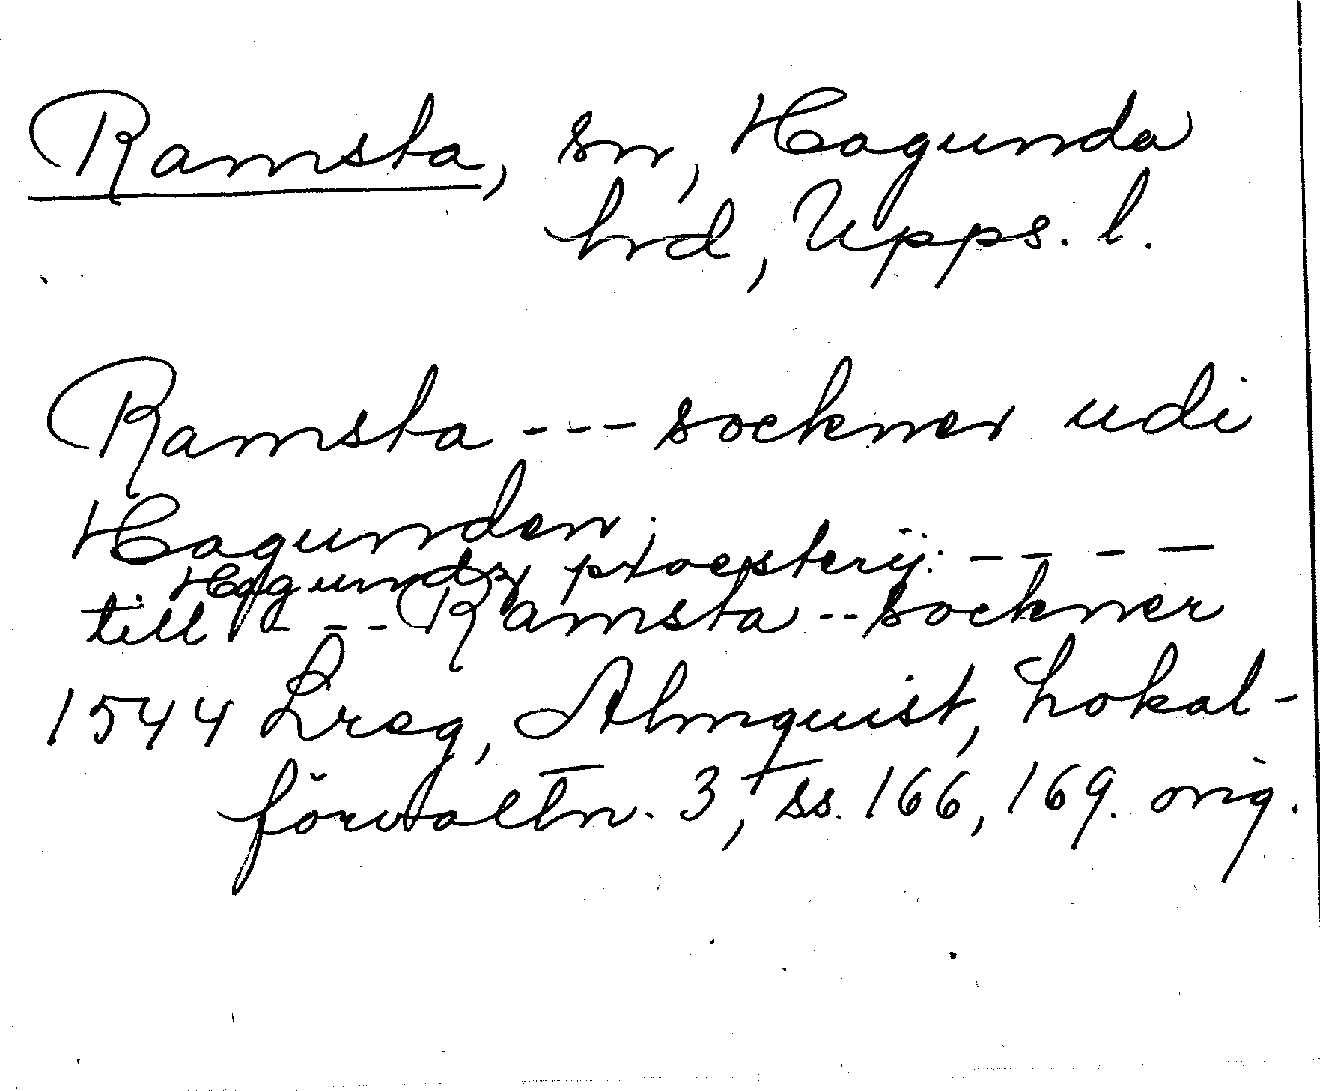 Ramsta, sn, Hagunda
hrd, Upps. l.
Ramsta --- sockner udi
Hagunden.
Hagunda proesterij: ----
till --- Ramsta -- sockner
1544 Lreg, Almquist, Lokal-
förvaltn. 3, ss. 166, 169. orig.